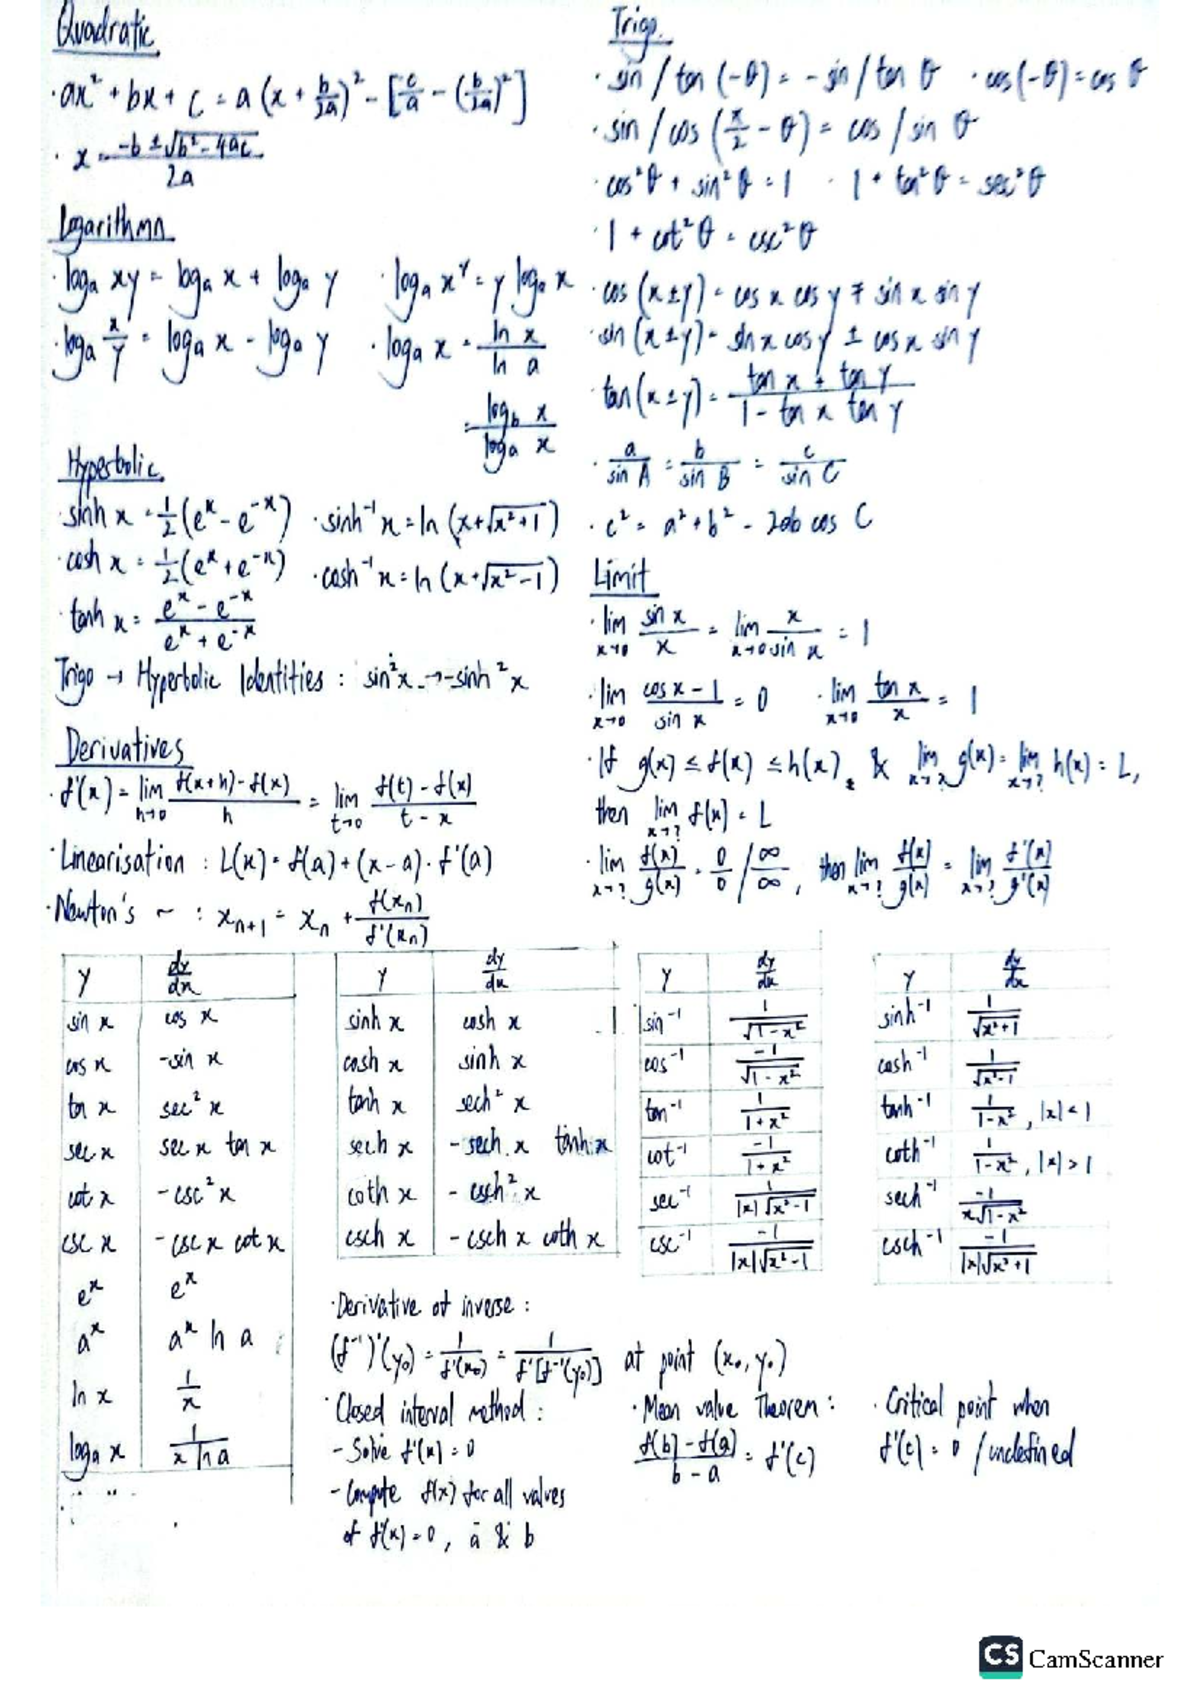 Quadratic
· ax² + bx + c = a (x + b/2a)² - [c/a - (b/2a)²]
· x = (-b ± √(b² - 4ac))/2a
Logarithmn
· logₐ xy = logₐ x + logₐ y · logₐ xʸ = y logₐ x
· logₐ x/y = logₐ x - logₐ y · logₐ x = ln x / ln a
= log_b x / logₐ x
Hyperbolic
· sinh x = 1/2 (eˣ - e⁻ˣ) · sinh⁻¹ x = ln (x + √(x² + 1))
· cosh x = 1/2 (eˣ + e⁻ˣ) · cosh⁻¹ x = ln (x + √(x² - 1))
· tanh x = (eˣ - e⁻ˣ)/(eˣ + e⁻ˣ)
Trigo → Hyperbolic Identities : sin²x → -sinh²x
Trigo.
· sin / tan (-θ) = - sin / tan θ · cos (-θ) = cos θ
· sin / cos (π/2 - θ) = cos / sin θ
· cos²θ + sin²θ = 1 · 1 + tan²θ = sec²θ
· 1 + cot²θ = csc²θ
· cos (x ± y) = cos x cos y ∓ sin x sin y
· sin (x ± y) = sin x cos y ± cos x sin y
· tan (x ± y) = (tan x + tan y)/(1 - tan x tan y)
· a/sin A = b/sin B = c/sin C
· c² = a² + b² - 2ab cos C
Limit
· lim x→0 sin x / x = lim x→0 x / sin x = 1
· lim x→0 (cos x - 1)/sin x = 0 · lim x→0 tan x / x = 1
· If g(x) ≤ f(x) ≤ h(x), & lim x→? g(x) = lim x→? h(x) = L,
then lim x→? f(x) = L
· lim x→? f(x)/g(x) = 0/0 / ∞/∞, then lim x→? f(x)/g(x) = lim x→? f'(x)/g'(x)
Derivatives
· f'(x) = lim h→0 (f(x+h) - f(x))/h = lim t→0 (f(t) - f(x))/(t - x)
· Linearisation : L(x) = f(a) + (x - a) · f'(a)
· Newton's ~ : xₙ₊₁ = xₙ + f(xₙ)/f'(xₙ)
y dy/dx
sin x cos x
cos x -sin x
tan x sec² x
sec x sec x tan x
cot x -csc² x
csc x -csc x cot x
eˣ eˣ
aˣ aˣ ln a
ln x 1/x
logₐ x 1/(x ln a)
y dy/dx
sinh x cosh x
cosh x sinh x
tanh x sech² x
sech x - sech x tanh x
coth x - csch² x
csch x - csch x coth x
y dy/dx
sin⁻¹ 1/√(1 - x²)
cos⁻¹ -1/√(1 - x²)
tan⁻¹ 1/(1 + x²)
cot⁻¹ -1/(1 + x²)
sec⁻¹ 1/(|x|√(x² - 1))
csc⁻¹ -1/(|x|√(x² - 1))
y dy/dx
sinh⁻¹ 1/√(x² + 1)
cosh⁻¹ 1/√(x² - 1)
tanh⁻¹ 1/(1 - x²), |x| < 1
coth⁻¹ 1/(1 - x²), |x| > 1
sech⁻¹ -1/(x√(1 - x²))
csch⁻¹ -1/(|x|√(x² + 1))
· Derivative of inverse :
(f⁻¹)'(y₀) = 1/f'(x₀) = 1/f'[f⁻¹(y₀)] at point (x₀, y₀)
· Closed interval method :
- Solve f'(x) = 0
- Compute f(x) for all values
of f'(x) = 0, a & b
· Mean value Theorem :
(f(b) - f(a))/(b - a) = f'(c)
· Critical point when
f'(c) = 0 / undefined
CS CamScanner